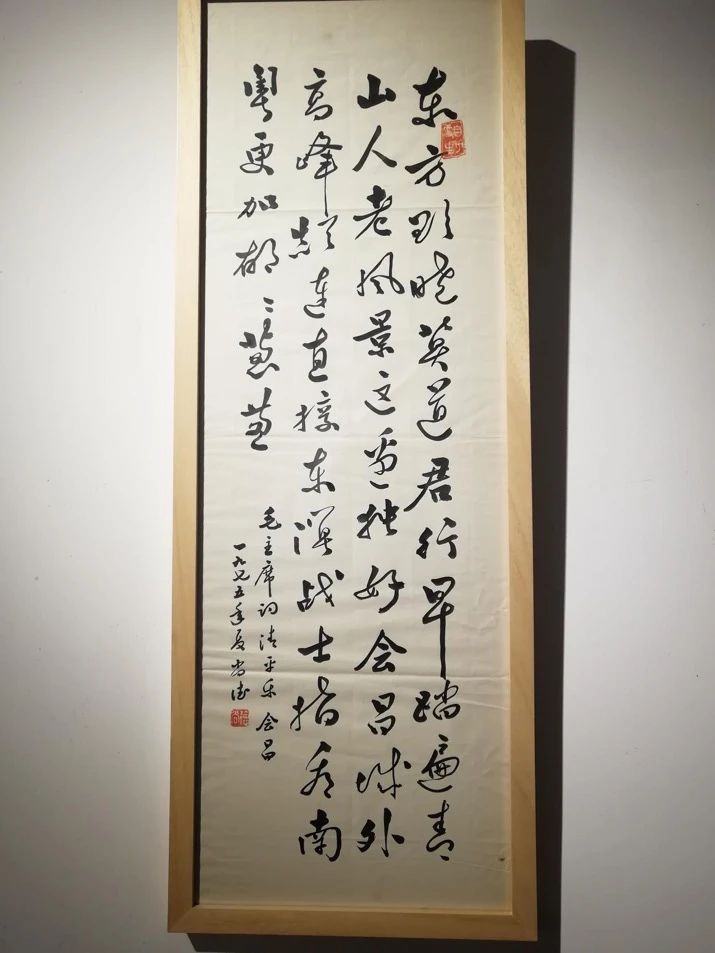 东方欲晓莫道君行早踏遍青
山人老风景这边独好会昌城外
高峰颠连直接东溟战士指看南
粤更加郁〻葱葱
毛主席词清平乐会昌
一九七五年夏尚